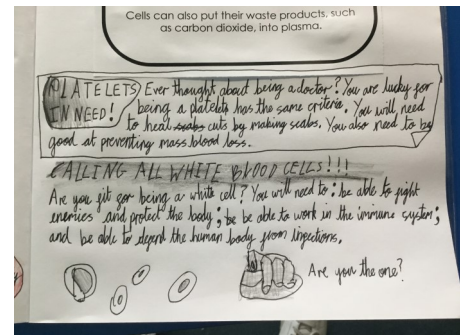 Cells can also put their waste products, such
as carbon dioxide, into plasma.
PLATELETS
IN NEED!
Ever thought about being a doctor? You are lucky for
being a platelet has the same criteria. You will need
to heal scabs cuts by making scabs. You also need to be
good at preventing mass blood loss.
CALLING ALL WHITE BLOOD CELLS!!!
Are you fit for being a white cell? You will need to: be able to fight
enemies and protect the body; be be able to work in the immune system;
and be able to defend the human body from infections.
Are you the one?